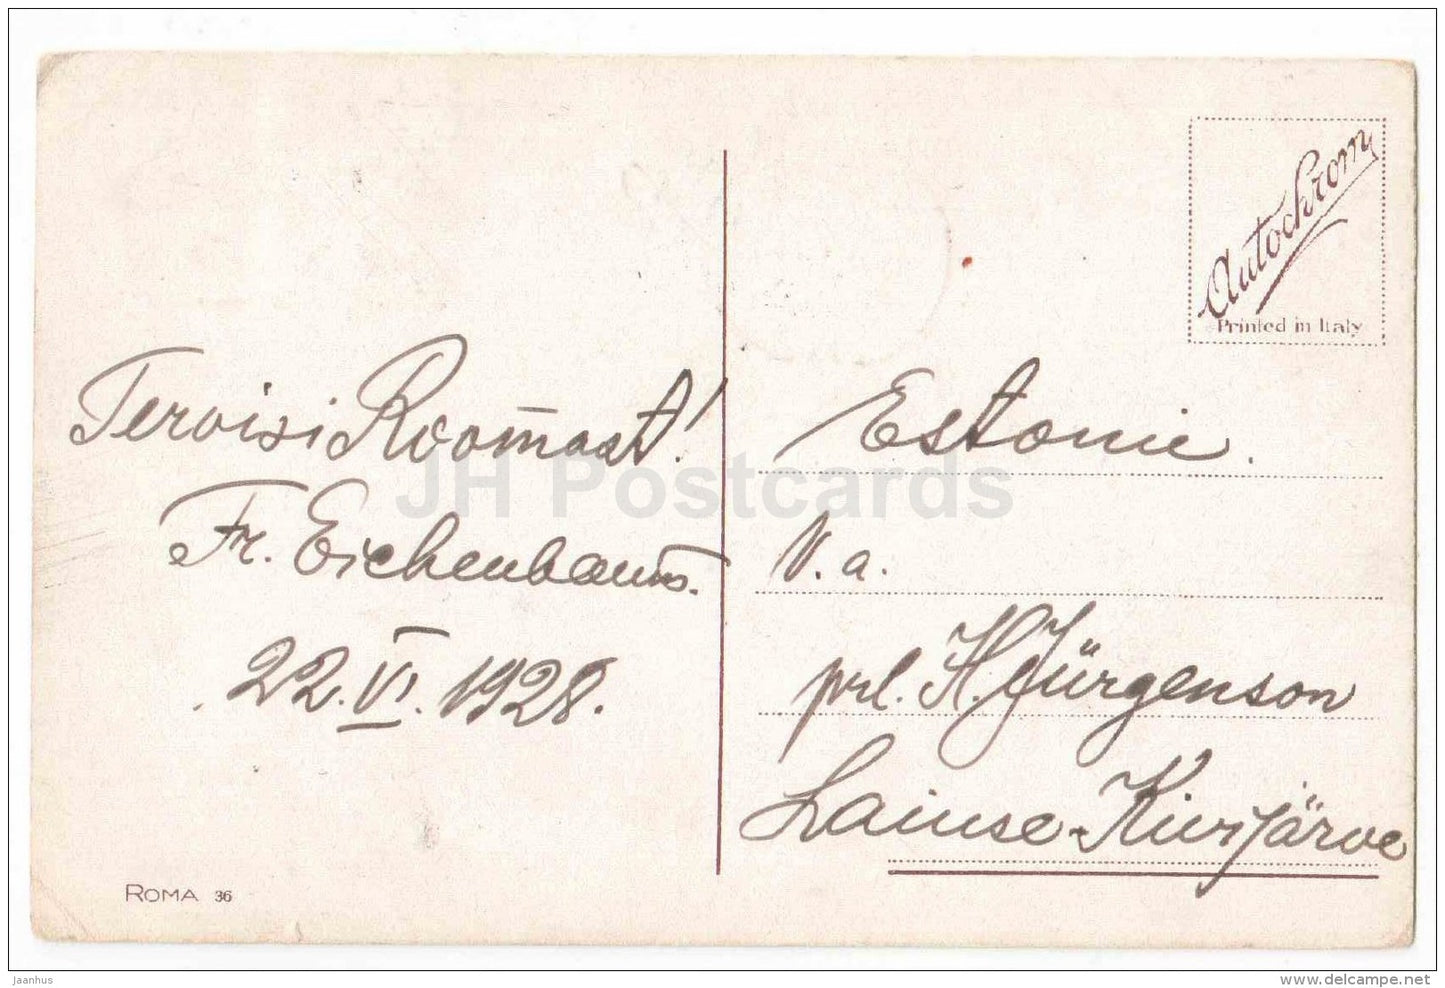 Autochrom
Printed in Italy
Tervisi Roomast!
Fr. Eichenbaum.
22. VI. 1928.
Estonie.
V. a.
prl. H. Jürgenson
Laiuse-Kivijärve
ROMA 36
JH Postcards
jaanhus
www.delcampe.net